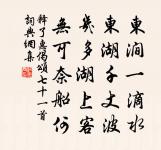 東澗一滴水
東湖千丈波
幾多湖上客
無可奈船何
釋了惠偈頌七十一首
詞典網集